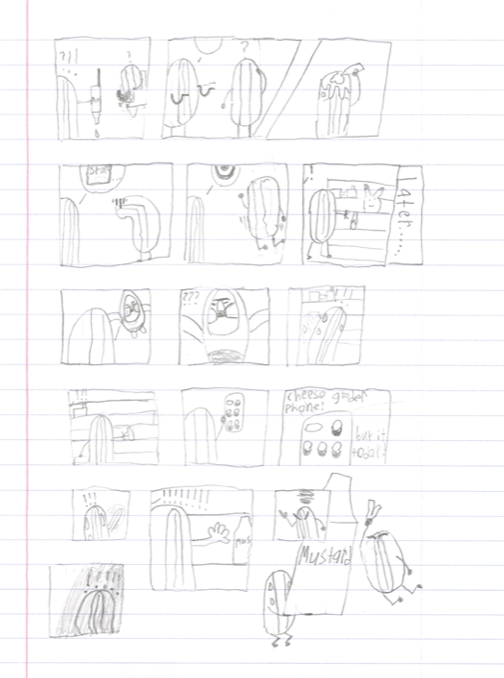 ?!!
?
?
Star
!
Later.....
???
!!
cheeso grader
phone!
buy it
today!
!!!
!!!!!!!!
Mus
Mustard
!!!!